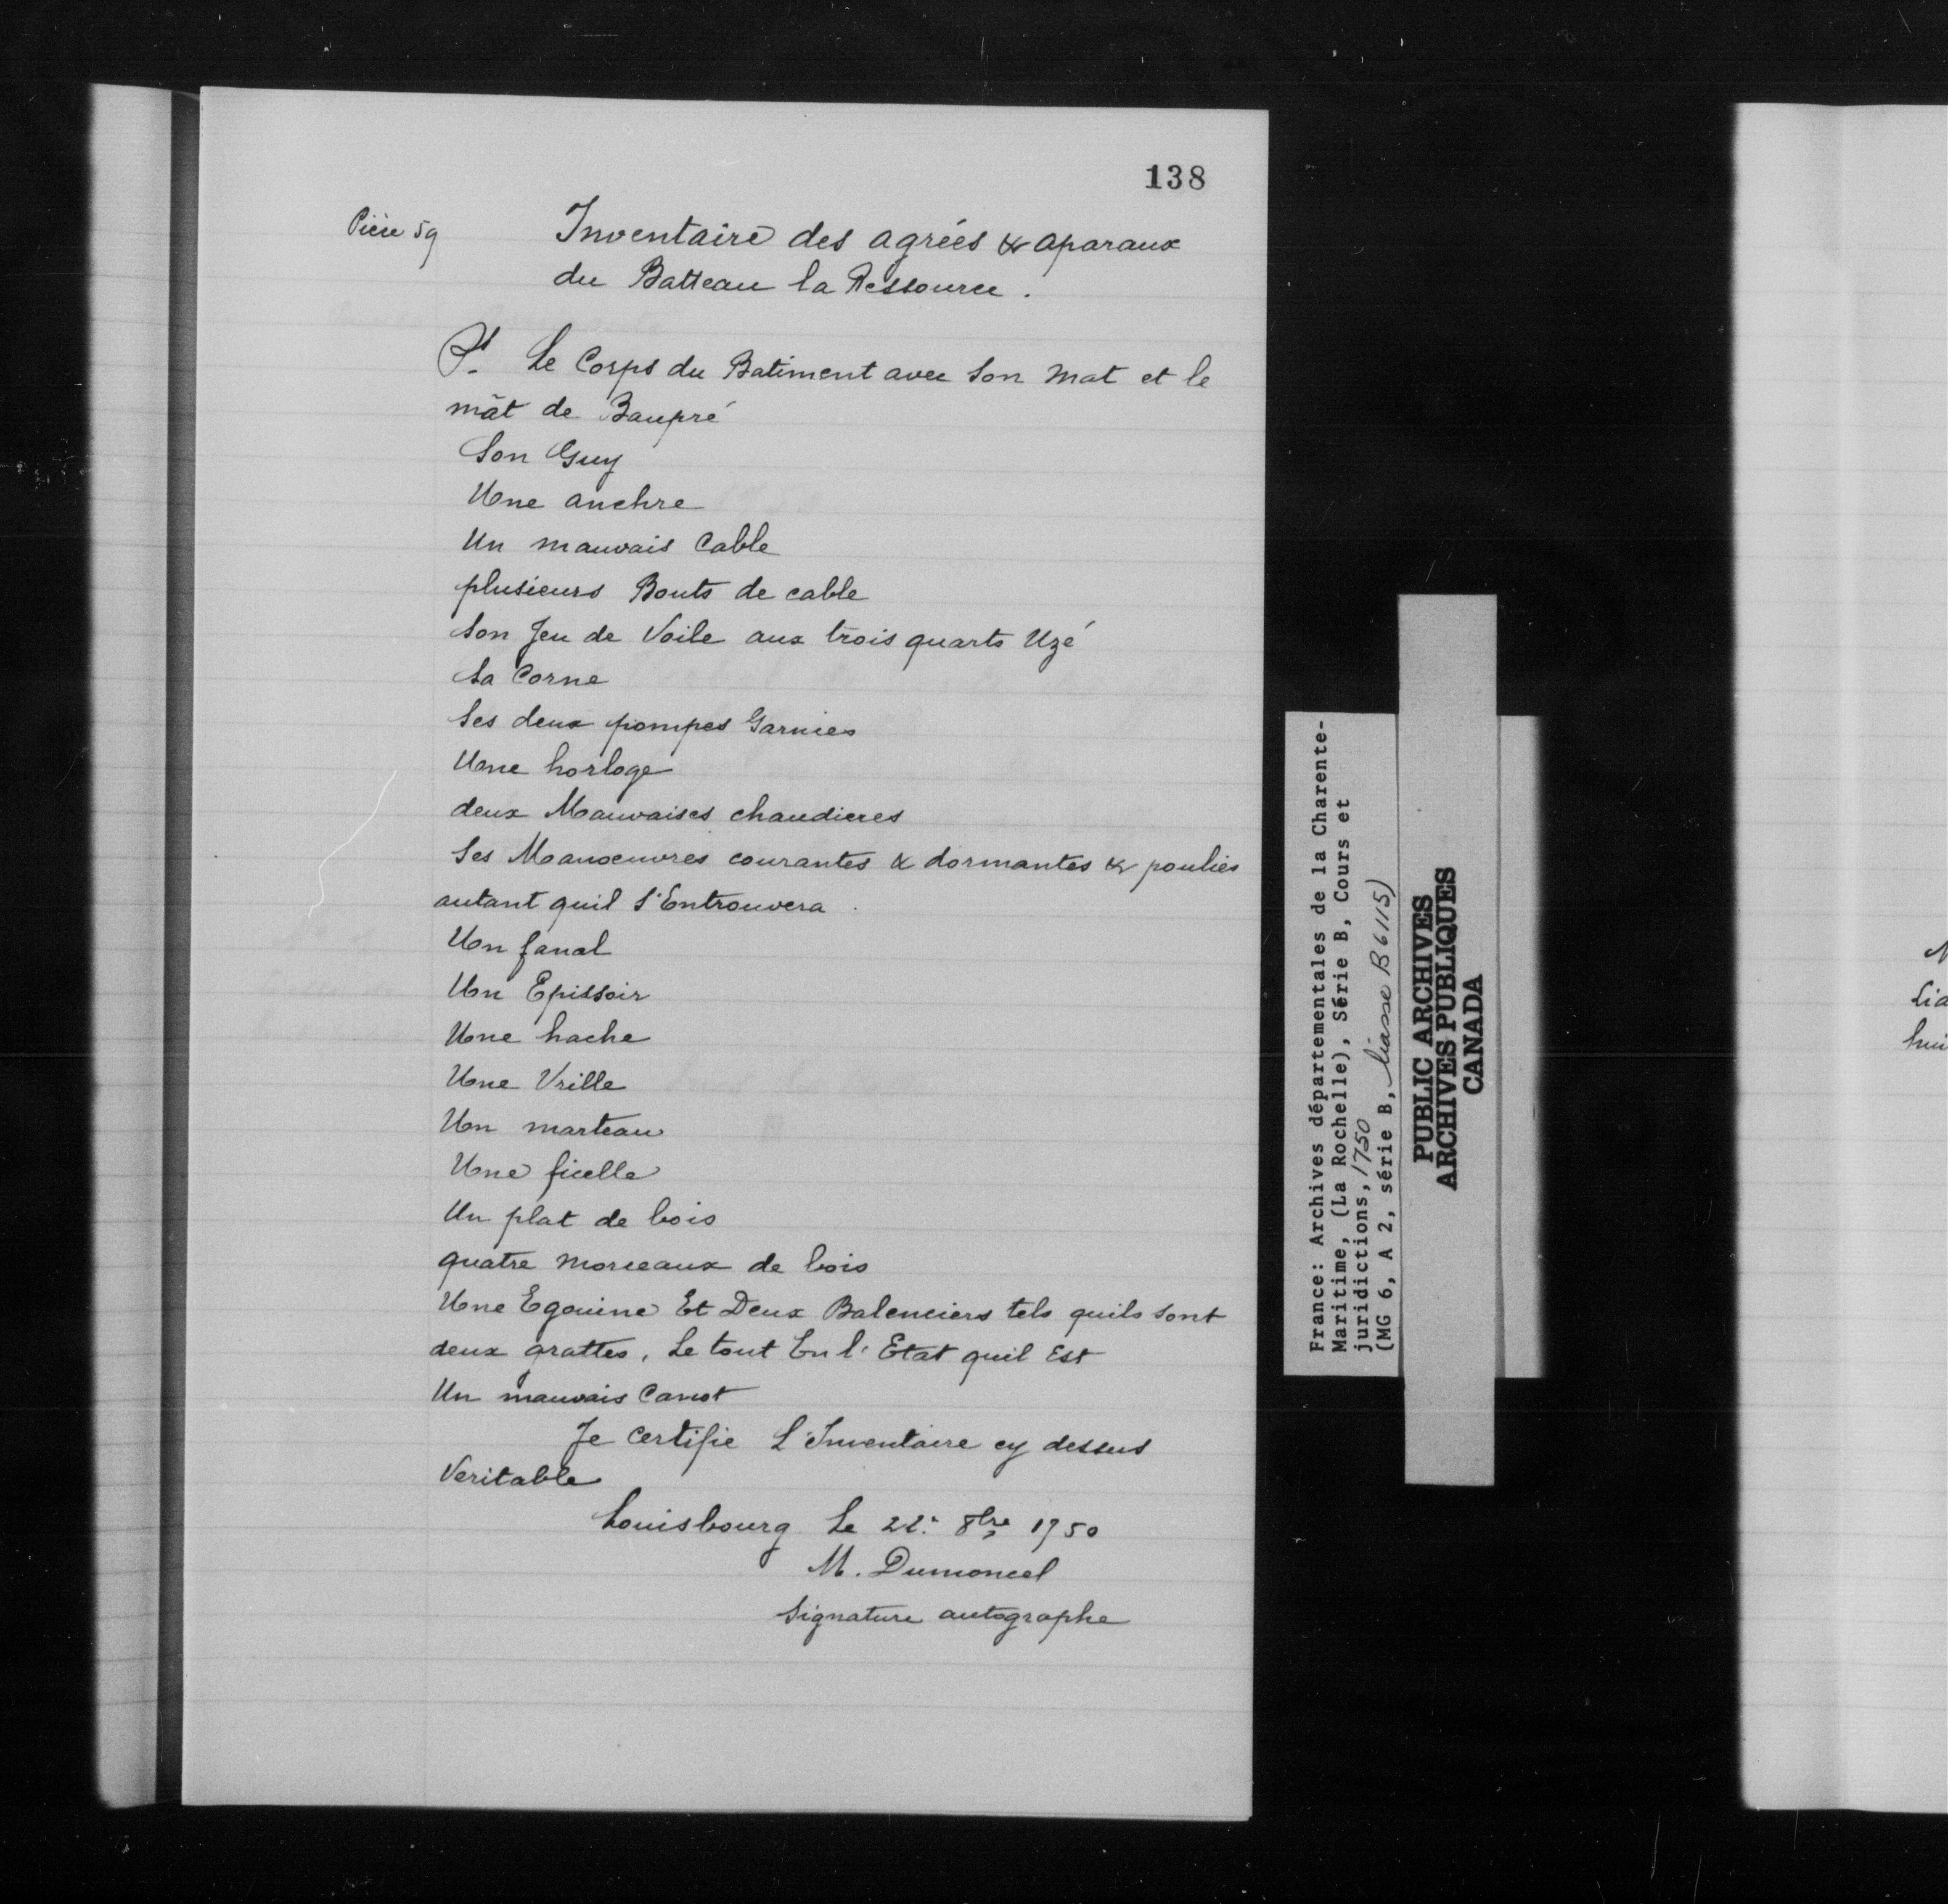 138
Pièce 59
Inventaire des agrées & aparaux
du Batteau la Ressource.
Le Corps du Batiment avec son mat et le
mât de Baupré
Son Guy
Une anchre
Un mauvais Cable
plusieurs Bouts de cable
son Jeu de Voile aux trois quarts Uzé
Sa Corne
Ses deux pompes Garnies
Une horloge
deux Mauvaises chaudieres
Ses Manoeuvres courantes & dormantes & poulies
autant quil s'Entrouvera.
Un fanal
Un Epissoir
Une hache
Une Vrille
Un marteau
Une ficelle
Un plat de bois
quatre morceaux de bois
Une Egouine Et Deux Balenciers tels quils sont
deux grattes, Le tout En l'Etat quil Est
Un mauvais Canot
Je Certifie L'Inventaire cy dessus
Veritable
Louisbourg Le 22. 8bre 1750
M. Dumoncel
Signature autographe
France: Archives départementales de la Charente-
Maritime, (La Rochelle), Série B, Cours et
juridictions, 1750
(MG 6, A 2, série B, liasse B 6115)
PUBLIC ARCHIVES
ARCHIVES PUBLIQUES
CANADA